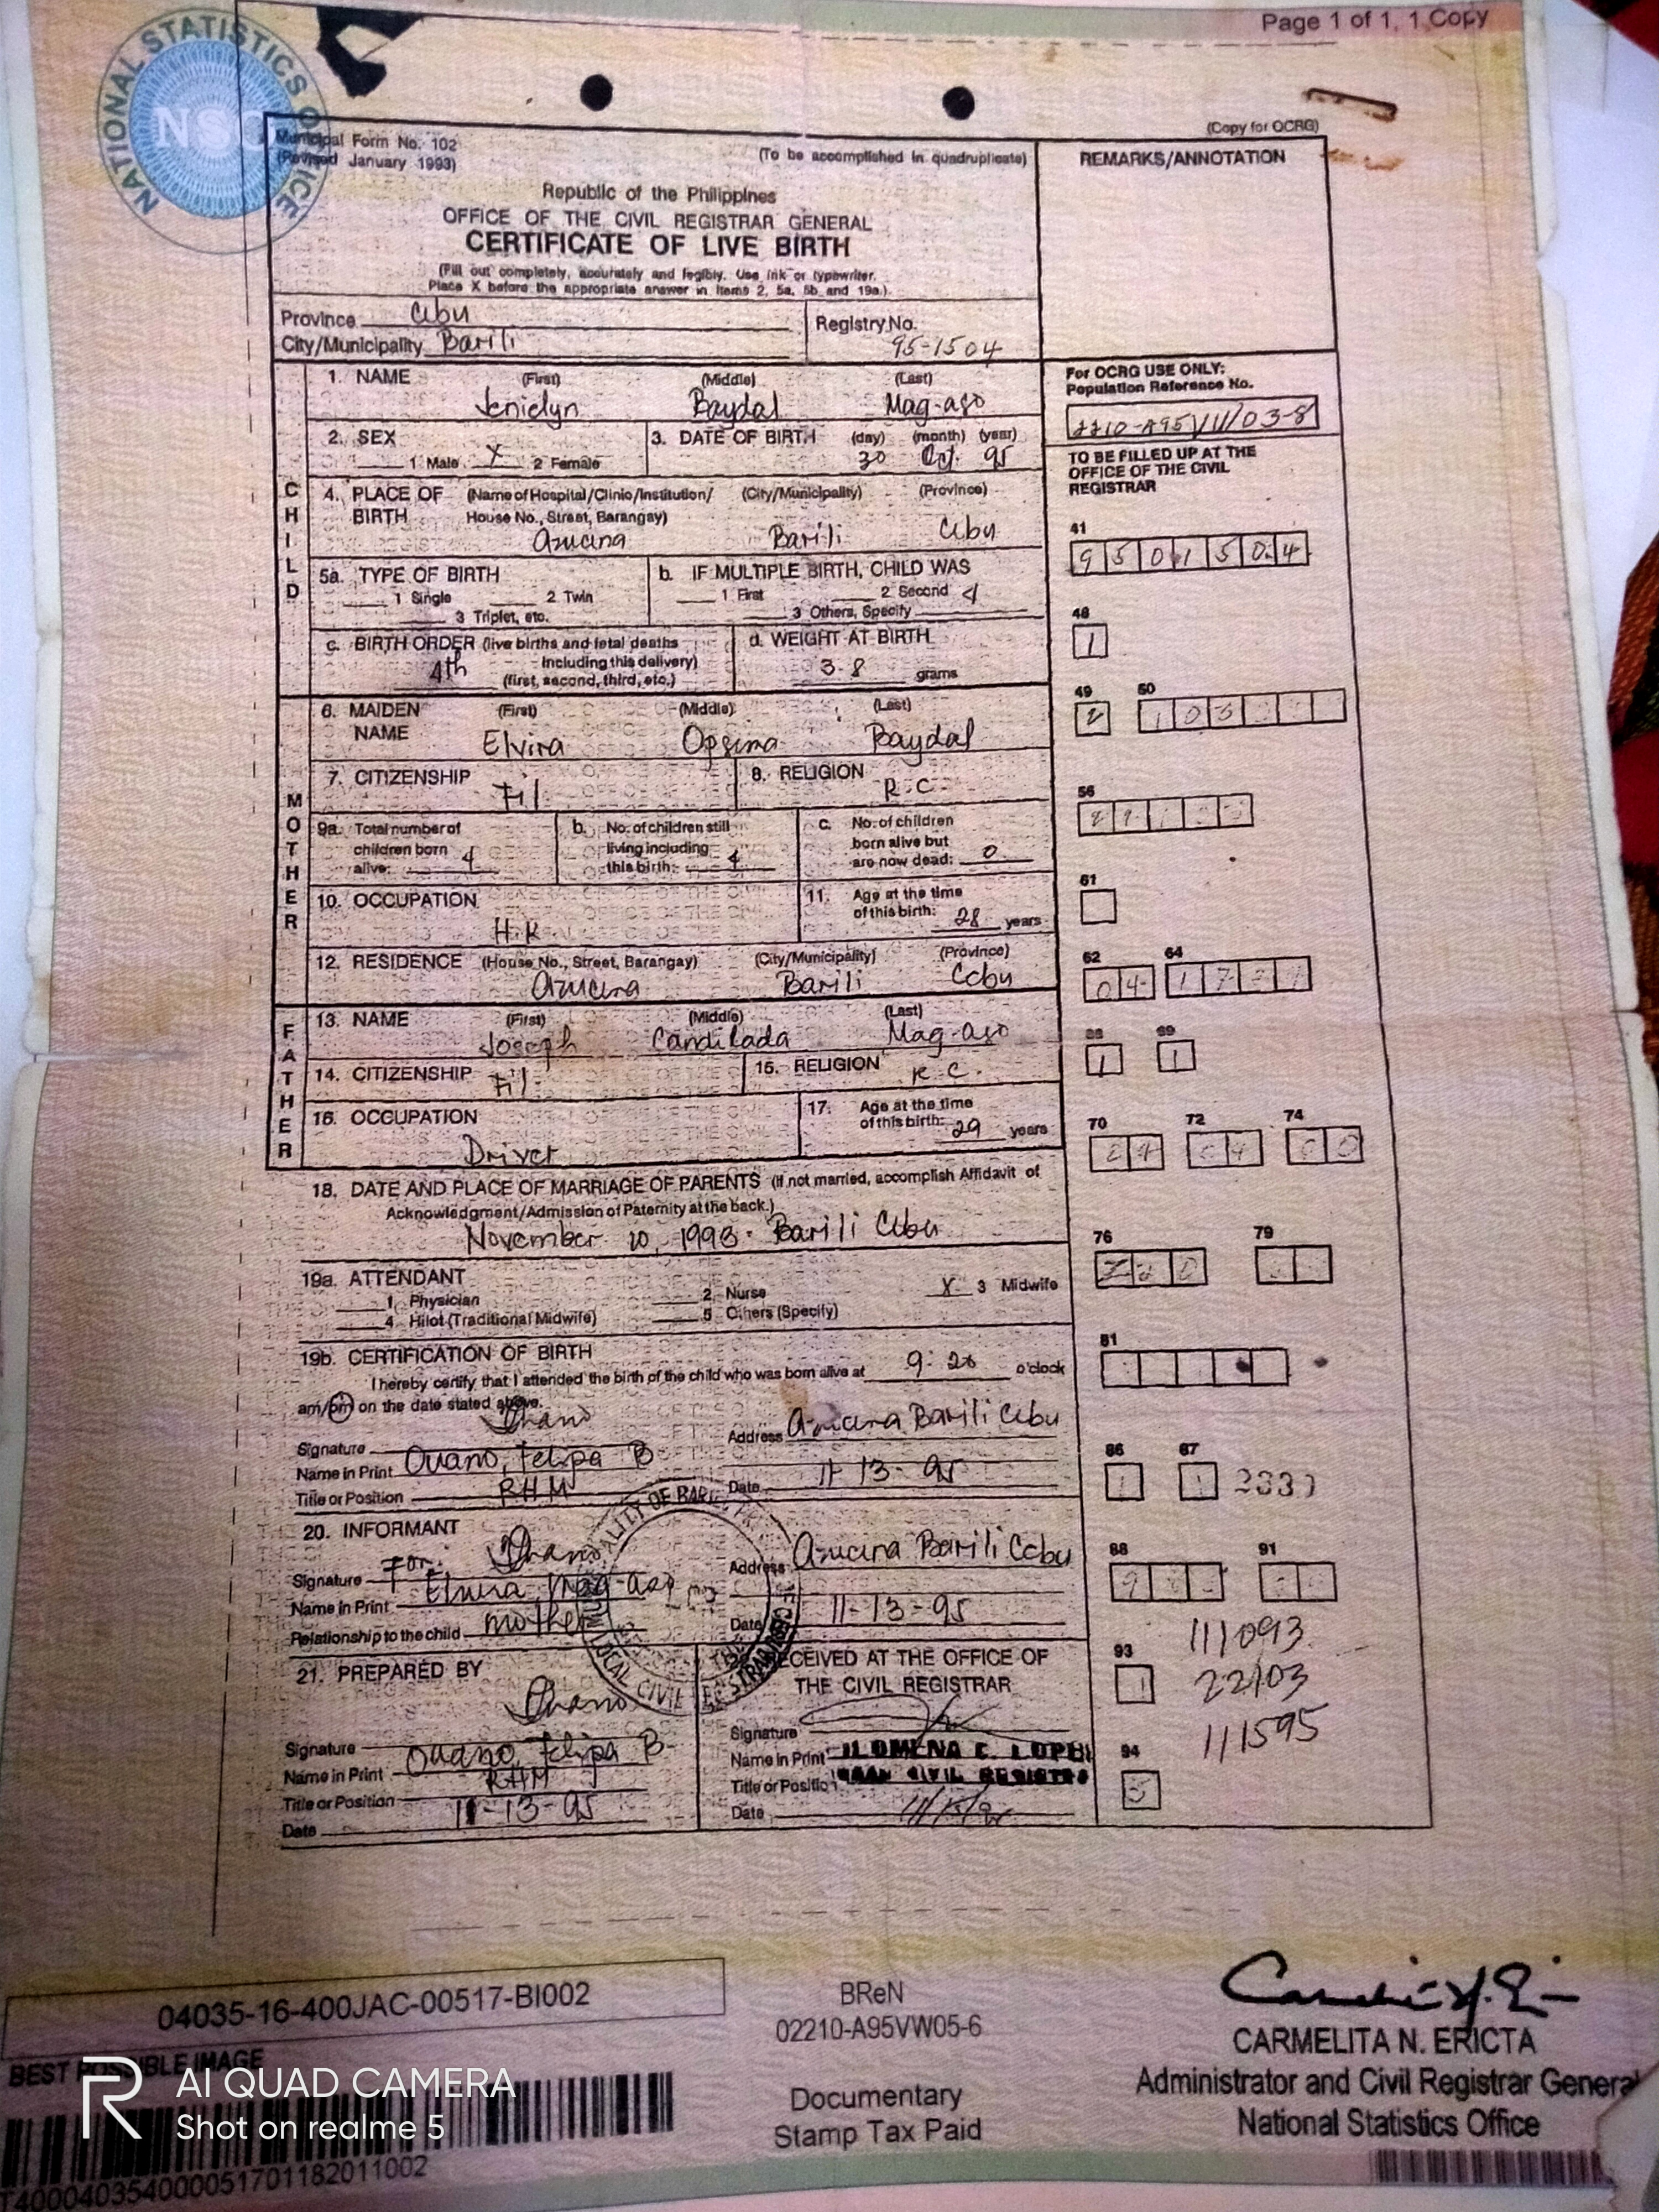 Page 1 of 1, 1 Copy
NATIONAL STATISTICS OFFICE
NSO
(Copy for OCRG)
Municipal Form No. 102
(Revised January 1993)
(To be accomplished in quadruplicate)
REMARKS/ANNOTATION
Republic of the Philippines
OFFICE OF THE CIVIL REGISTRAR GENERAL
CERTIFICATE OF LIVE BIRTH
(Fill out completely, accurately and legibly. Use ink or typewriter.
Place X before the appropriate answer in items 2, 5a, 5b and 19a.)
Province Cebu
City/Municipality Barili
Registry No.
95-1504
For OCRG USE ONLY:
Population Reference No.
2210-A95
TO BE FILLED UP AT THE
OFFICE OF THE CIVIL
REGISTRAR
CHILD
1. NAME (First) (Middle) (Last)
Jenielyn Baydal Mag-aso
2. SEX
1 Male X 2 Female
3. DATE OF BIRTH (day) (month) (year)
30 Oct. 95
4. PLACE OF BIRTH (Name of Hospital/Clinic/Institution/ (City/Municipality) (Province)
House No., Street, Barangay)
Azucena Barili Cebu
41
9 5 0 1 5 0 4
5a. TYPE OF BIRTH
1 Single 2 Twin
3 Triplet, etc.
b. IF MULTIPLE BIRTH, CHILD WAS
1 First 2 Second
3 Others, Specify
48
1
c. BIRTH ORDER (live births and fetal deaths
including this delivery)
4th
(first, second, third, etc.)
d. WEIGHT AT BIRTH
3-8 grams
49 50
2
MOTHER
6. MAIDEN NAME (First) (Middle) (Last)
Elvira Opsima Baydal
7. CITIZENSHIP
Fil.
8. RELIGION
R.C.
56
9a. Total number of
children born
alive: 4
b. No. of children still
living including
this birth: 4
c. No. of children
born alive but
are now dead: 0
61
10. OCCUPATION
H.K
11. Age at the time
of this birth: 28 years
12. RESIDENCE (House No., Street, Barangay) (City/Municipality) (Province)
Azucena Barili Cebu
62 64
0 4
FATHER
13. NAME (First) (Middle) (Last)
Joseph Candilada Mag-aso
14. CITIZENSHIP Fil.
15. RELIGION R.C.
69
1 1
16. OCCUPATION
Driver
17. Age at the time
of this birth: 29 years
70 72 74
18. DATE AND PLACE OF MARRIAGE OF PARENTS (If not married, accomplish Affidavit of
Acknowledgment/Admission of Paternity at the back.)
November 10, 1993. Barili Cebu
76 79
19a. ATTENDANT
1 Physician 2 Nurse X 3 Midwife
4 Hilot (Traditional Midwife) 5 Others (Specify)
81
19b. CERTIFICATION OF BIRTH
I hereby certify that I attended the birth of the child who was born alive at 9:20 o'clock
am/pm on the date stated above.
Signature
Name in Print Ouano, Felipa B
Title or Position RHM
Address Azucena Barili Cebu
Date 11-13-95
86 87
20. INFORMANT
Signature For:
Name in Print Mag-aso
Relationship to the child mother
Address Azucena Barili Cebu
Date 11-13-95
88 91
111093
LOCAL CIVIL REGISTRAR
21. PREPARED BY
Signature
Name in Print Ouano, Felipa B
Title or Position RHM
Date 11-13-95
RECEIVED AT THE OFFICE OF
THE CIVIL REGISTRAR
Signature
Name in Print
Title or Position
Date
93
22103
111595
94
04035-16-400JAC-00517-BI002
BEST POSSIBLE IMAGE
BReN
02210-A95VW05-6
Documentary
Stamp Tax Paid
CARMELITA N. ERICTA
Administrator and Civil Registrar General
National Statistics Office
AI QUAD CAMERA
Shot on realme 5
T400040354000051701182011002